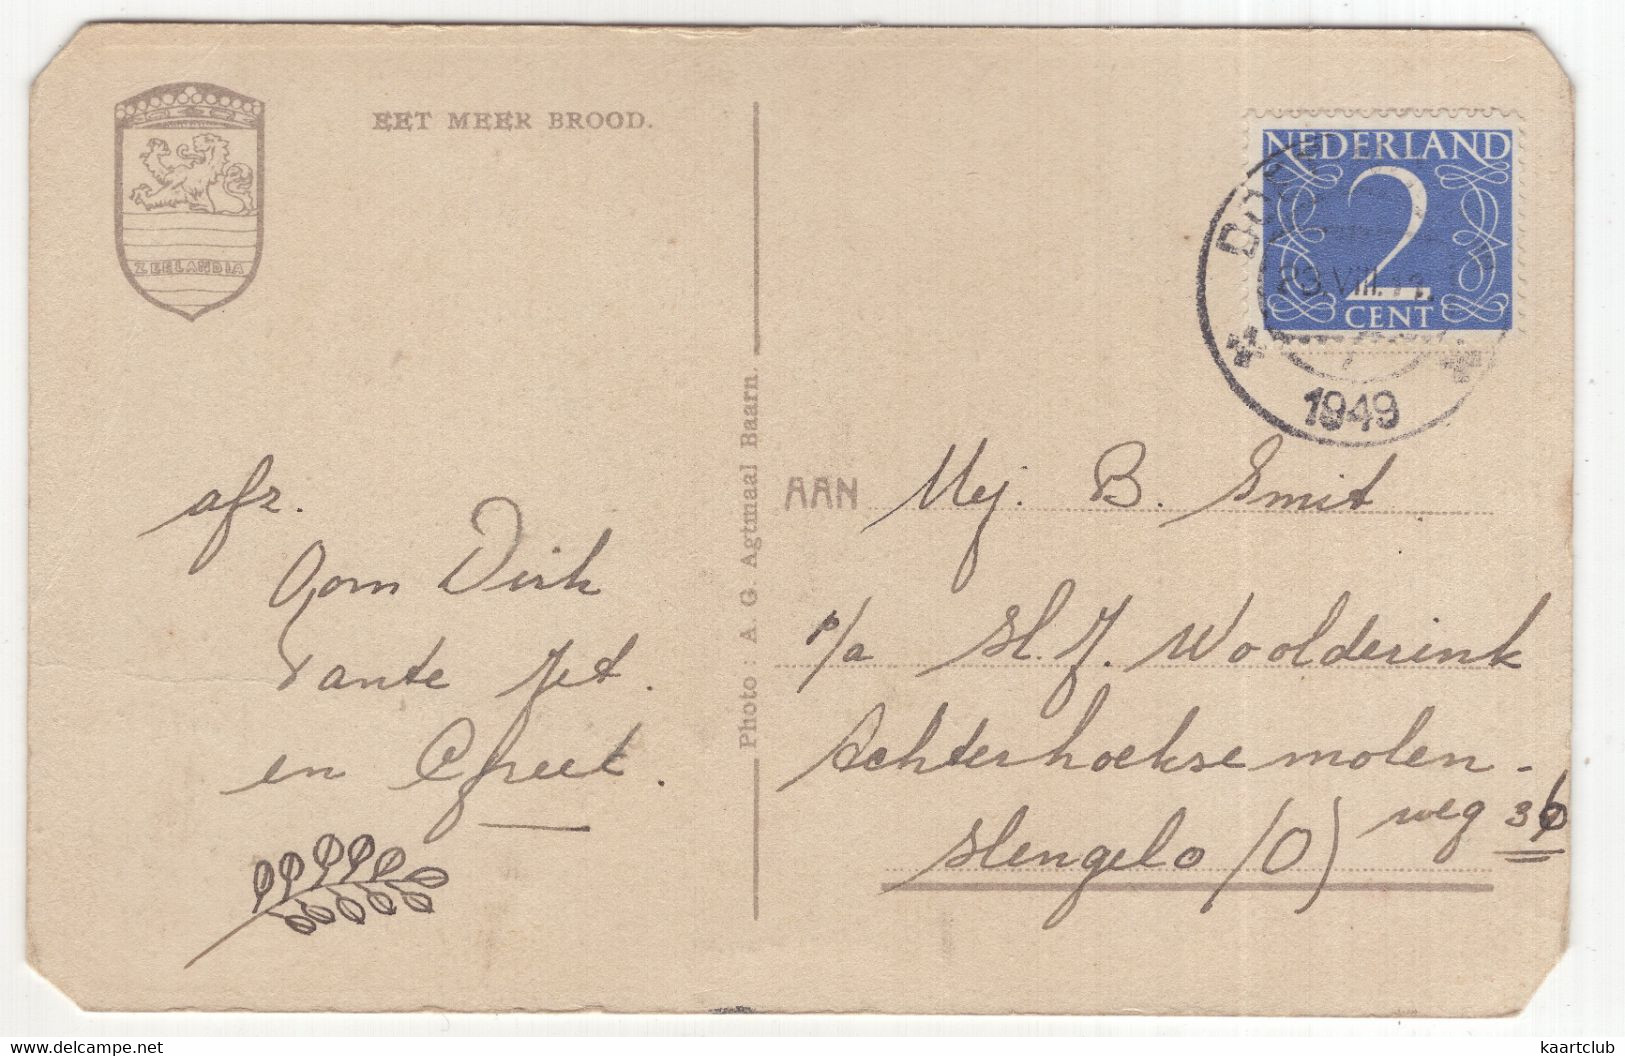 EET MEER BROOD.
ZEELANDIA
NEDERLAND
2
CENT
23.VIII.
1949
Photo: A. G. Agtmaal Baarn.
afz.
Oom Dirk
Tante Jet.
en Greet.
AAN Mej. B. Smit
p/a H. J. Woolderink
Achterhoekse molen-
weg 36
Hengelo (O)
www.delcampe.net
kaartclub